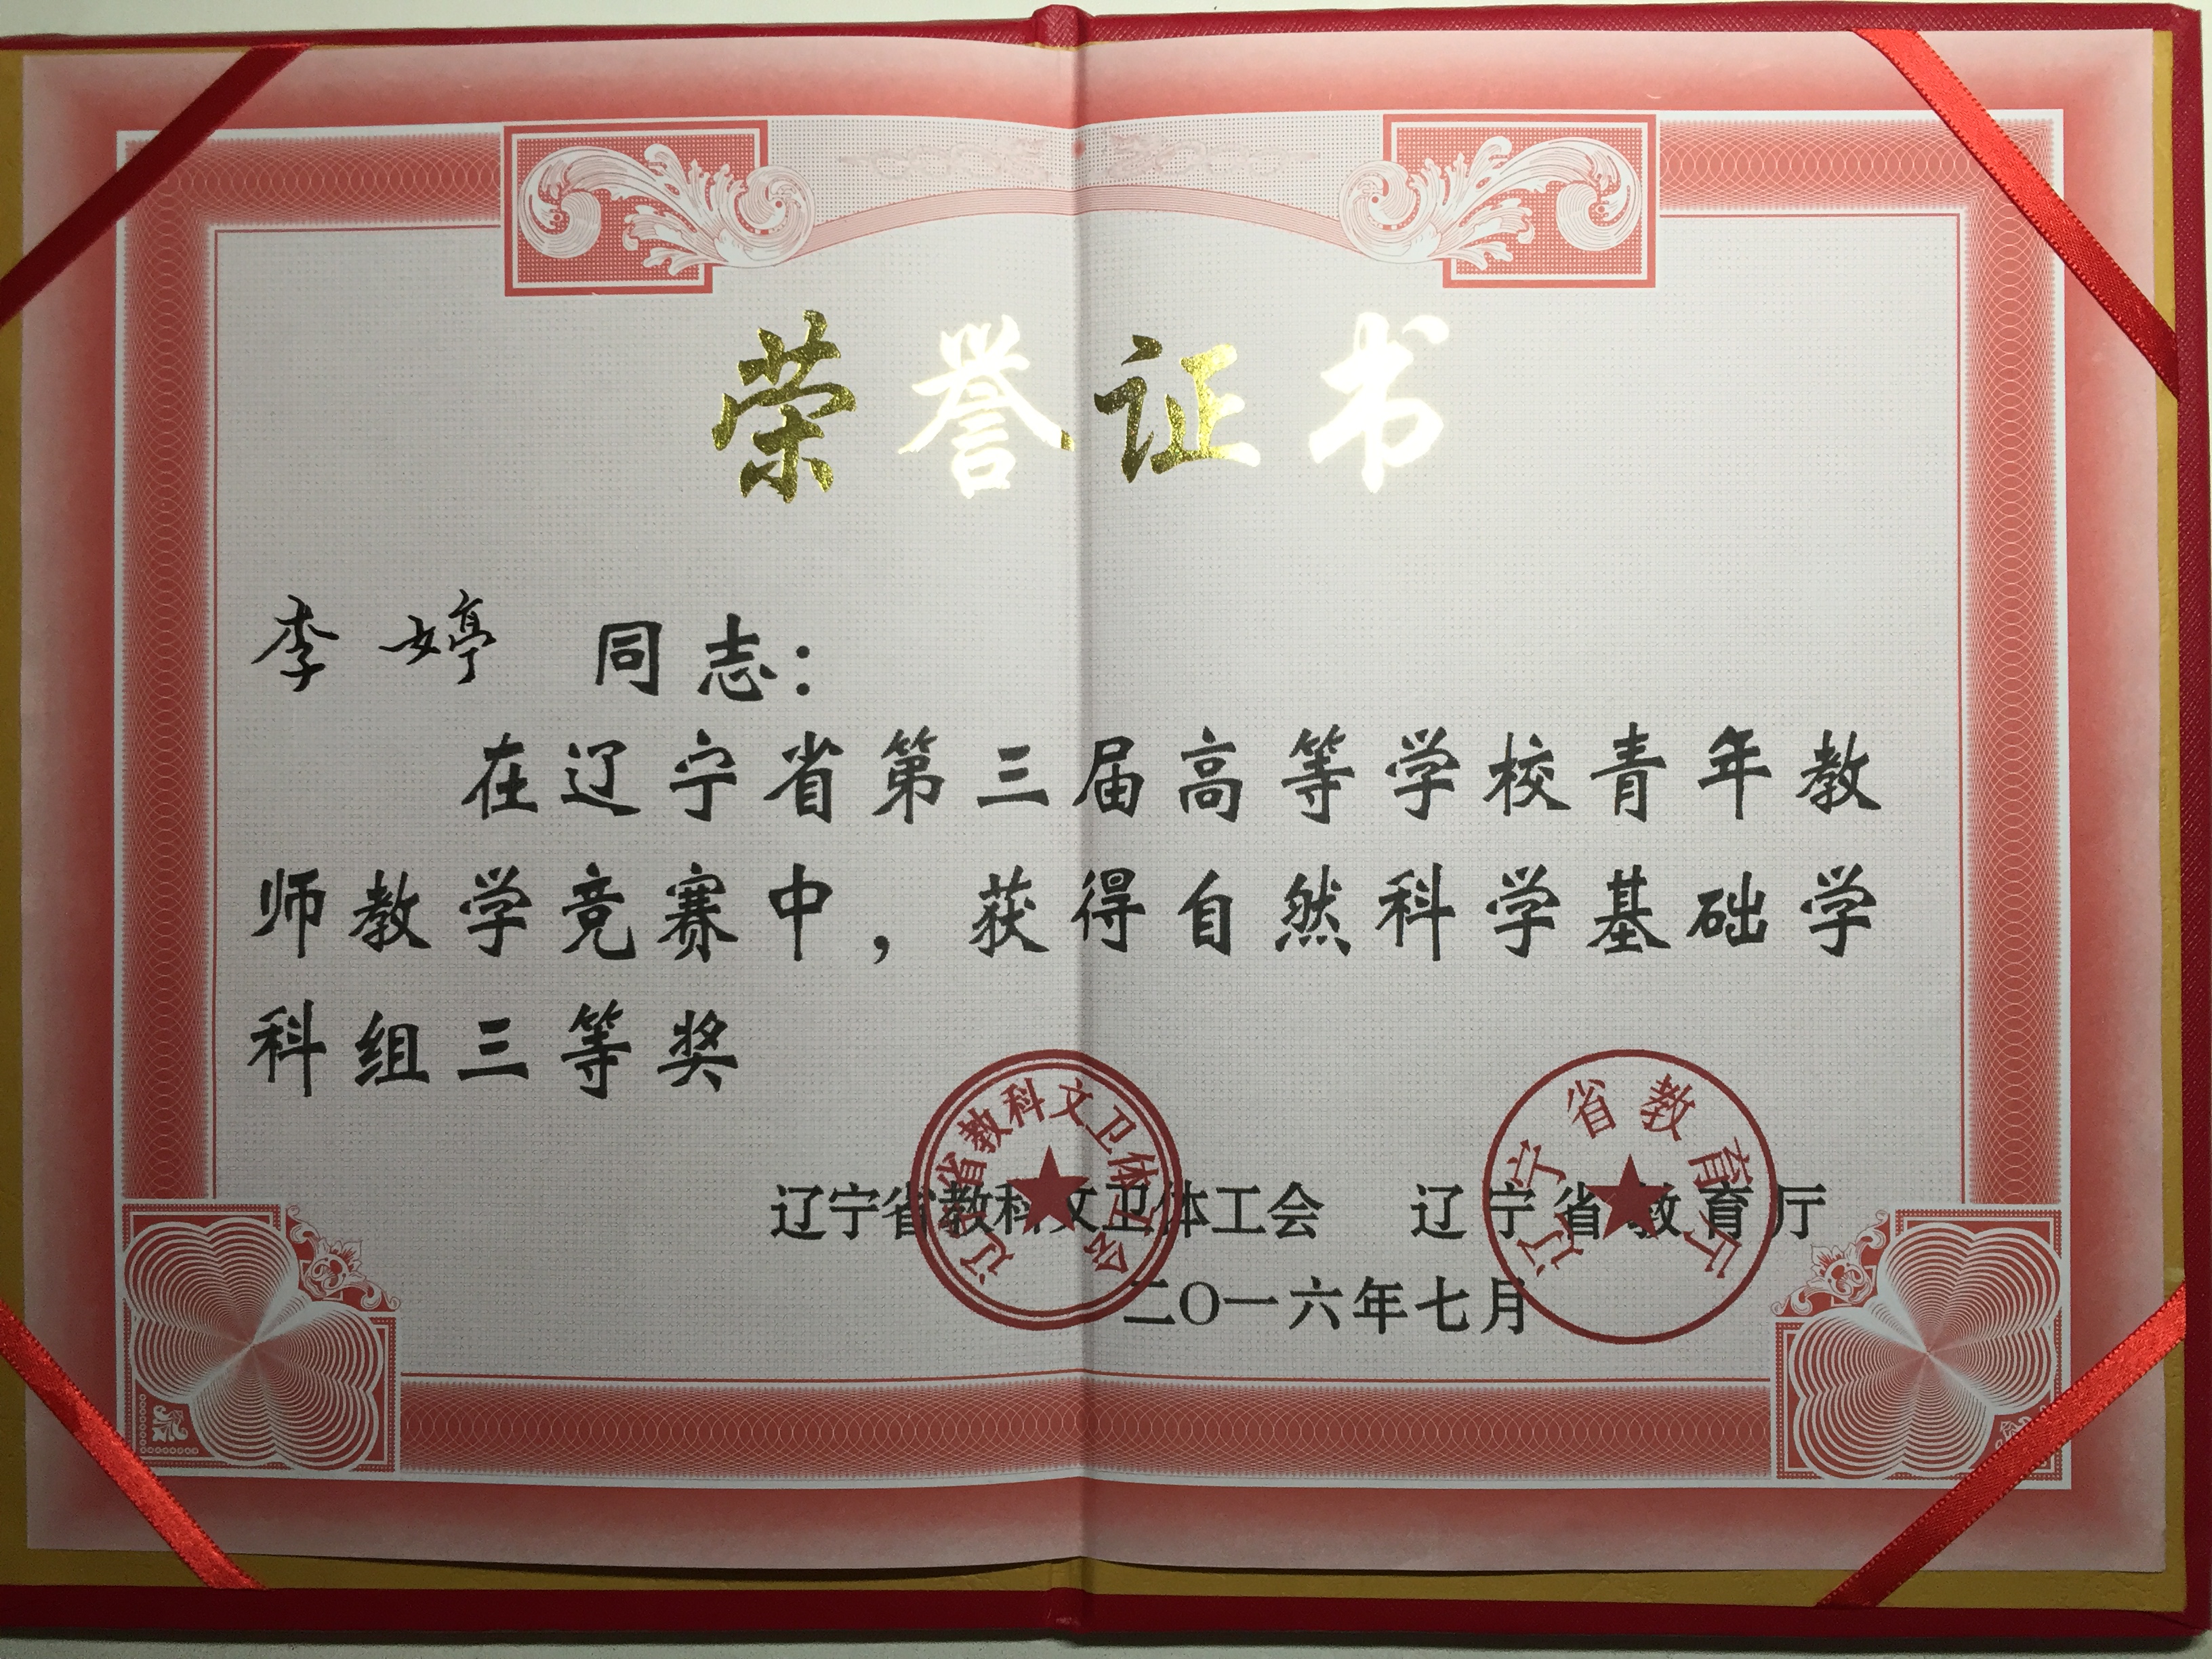 荣誉证书
李婷 同志：
在辽宁省第三届高等学校青年教
师教学竞赛中，获得自然科学基础学
科组三等奖
辽宁省教科文卫体工会 辽宁省教育厅
二〇一六年七月
辽宁省教科文卫体工会
辽宁省教育厅